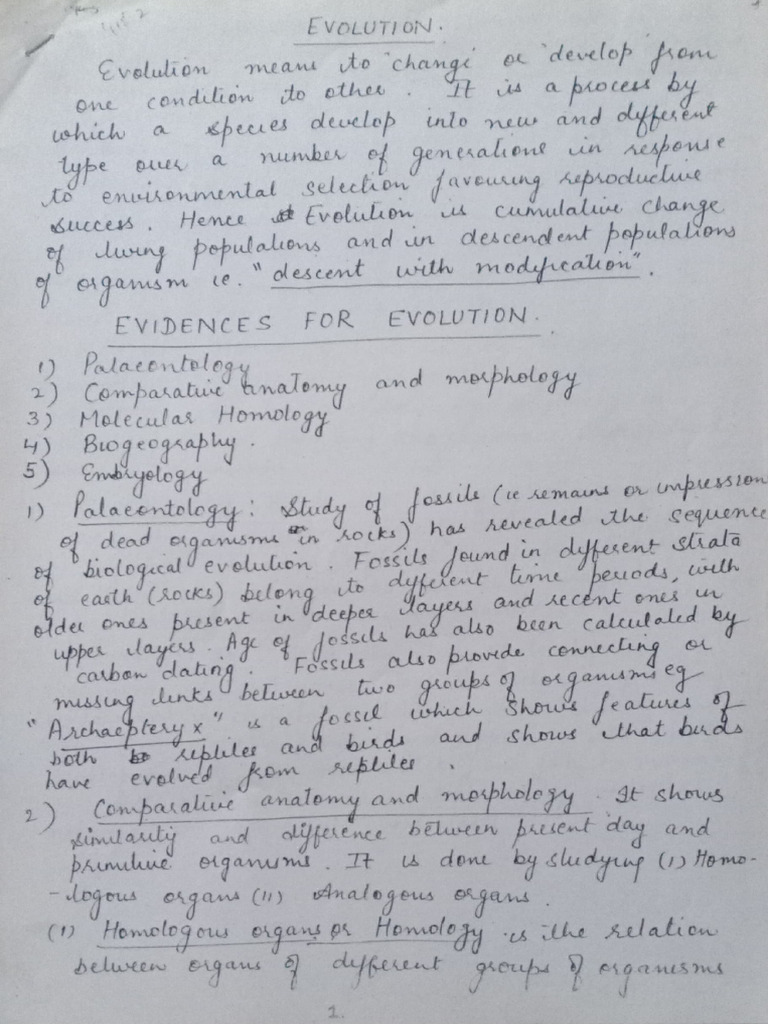 EVOLUTION.
Evolution means to 'change' or 'develop' from
one condition to other. It is a process by
which a species develop into new and different
type over a number of generations in response
to environmental selection favouring reproductive
success. Hence Evolution is cumulative change
of living populations and in descendent populations
of organism ie. "descent with modification".
EVIDENCES FOR EVOLUTION.
1) Palaeontology
2) Comparative anatomy and morphology
3) Molecular Homology
4) Biogeography.
5) Embryology
1) Palaeontology: Study of fossils (ie remains or impression
of dead organisms in rocks) has revealed the sequence
of biological evolution. Fossils found in different strata
of earth (rocks) belong to different time periods, with
older ones present in deeper layers and recent ones in
upper layers. Age of fossils has also been calculated by
carbon dating. Fossils also provide connecting or
missing links between two groups of organisms eg
"Archaeopteryx" is a fossil which shows features of
both reptiles and birds and shows that birds
have evolved from reptiles.
2) Comparative anatomy and morphology. It shows
similarity and difference between present day and
primitive organisms. It is done by studying (I) Homo-
-logous organs (II) Analogous organs.
(I) Homologous organs or Homology is the relation
between organs of different groups of organisms
1.